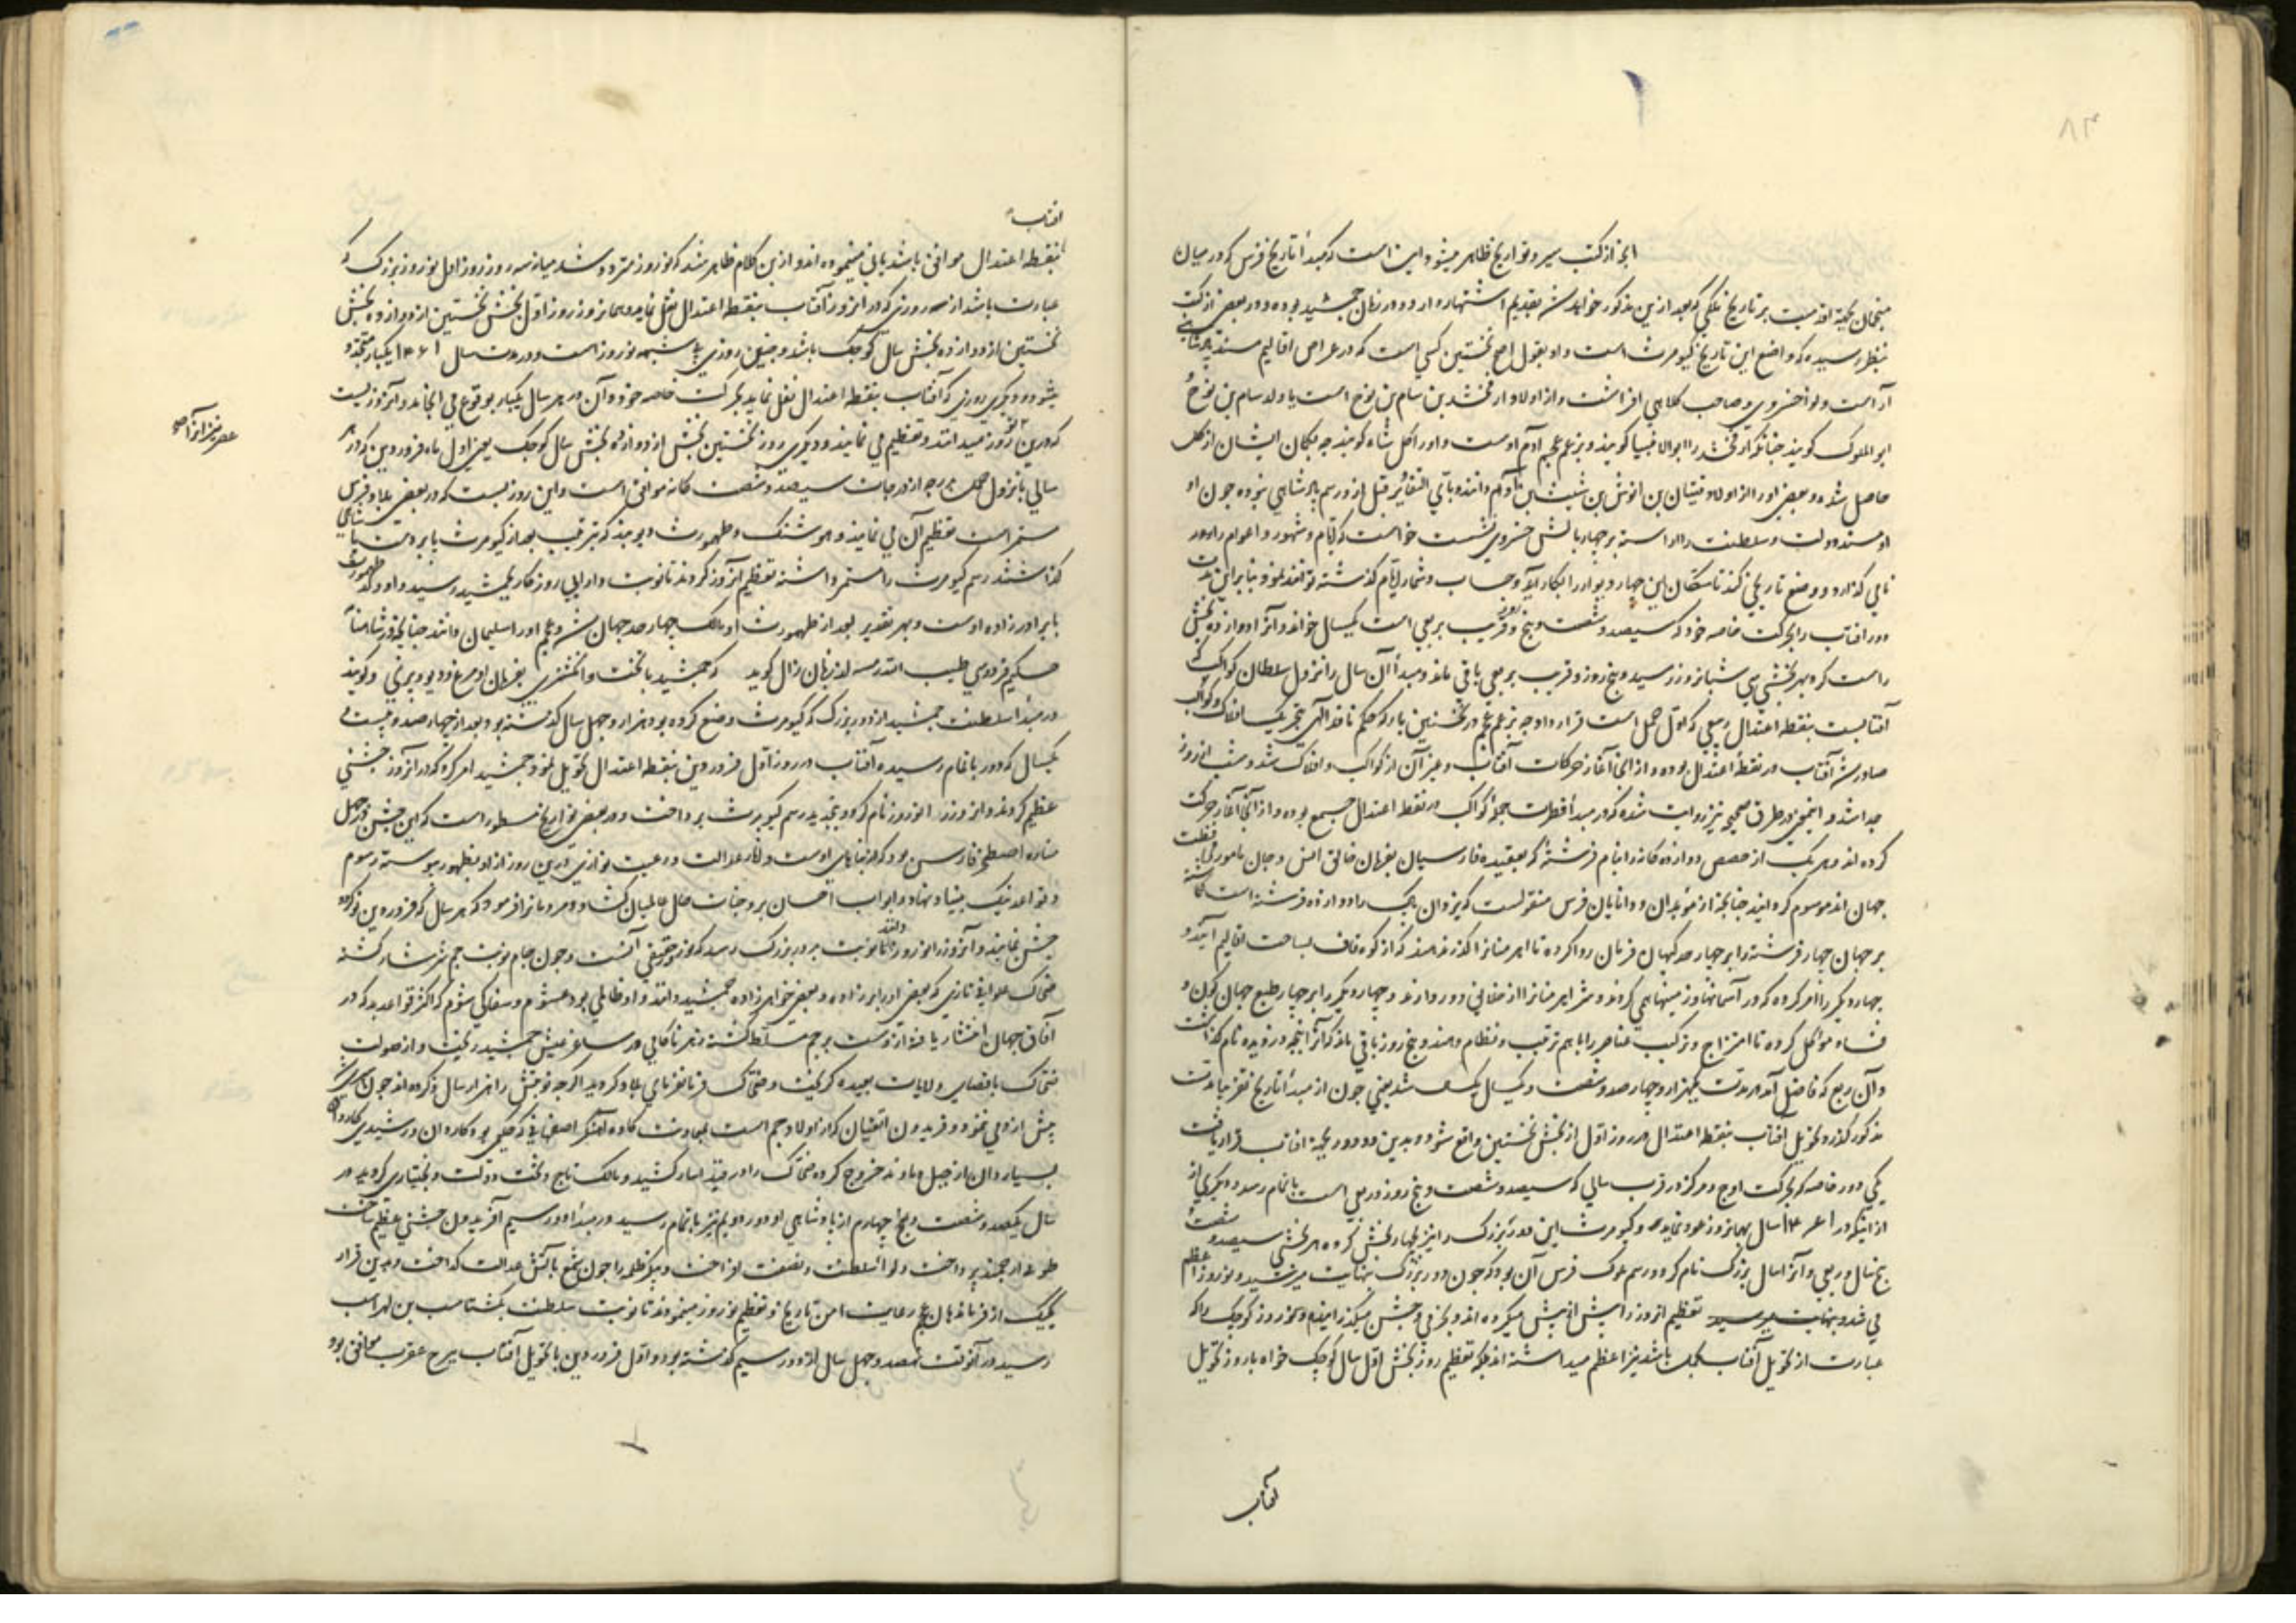 ۸۳
انچه از کتب سیر و تواریخ ظاهر میشود این است که مبدأ تاریخ فرس که در میان
منجمان بجهة اقدمیت بر تاریخ ملکی که بعد ازین مذکور خواهد شد بقدیم اشتهار دارد و در زمان جمشید بوده و در بعضی از کتب
بنظر رسیده که واضع این تاریخ کیومرث است و او بقول اصح نخستین کسی است که در عراص اقالیم مسند پادشاهی
آراست و لوأ خسروی و صاحب کلاهی افراشت و از اولاد ارفخشد بن سام بن نوح است یا ولد سام بن نوح
ابو الملوک گویند چنانکه ارفخشد را ابوالانبیا گویند و بزعم عجم آدم اوست و او را گل شاه گویند چه بگمان ایشان از گل
حاصل شده و بعضی او را از اولاد قینان بن انوش بن شیث بن آدم دانند و بای التقادیر قبل از و رسم پادشاهی نبوده چون او
مسند دولت و سلطنت را آراسته بر چهار بالش خسروی نشست خواست که ایام و شهور و اعوام را در
نامی گذارد و وضع تاریخی کند تا سکان این چهار دیوار را بکار آید و حساب و شمار ایام گذشته توانند نمود بنابراین مدت
دور آفتاب را بحرکت خاصه خود که سیصد و شصت و پنج روز و قریب بربعی است یکسال خواند و آنرا دوازده بخش
راست کرد بهر بخشی سی شبانروز رسید و پنج روز و قریب بربعی باقی ماند و مبدأ آن سال را نزول سلطان کواکب که
آفتابست بنقطه اعتدال ربیعی که اول حمل است قرار داد چه بزعم عجم در نخستین بار که حکم نافذ الهی بتحریک افلاک و کواکب
صادر شد آفتاب در نقطهٔ اعتدال بوده و از انجا آغاز حرکات آفتاب و غیر آن از کواکب و افلاک شد و شب از روز
جدا شد و اینمعنی در طرق صحیح نیز روایت شده که در مبدأ فطرت جمله کواکب در نقطه اعتدال جمیع بوده و از انجا آغاز حرکت
کرده اند و هر یک از حصص دوازده گانه را بنام فرشتهٔ که بعقیده فارسیان بفرمان خالق انس و جان مامور بحفظ
جهان اند موسوم گردانید چنانچه از موبدان و دانایان فرس منقولست که یزدان پاک را دوازده فرشته است که
بر جهان چهار فرشته را بر چهار حد کیهان فرمان روا کرده تا اهرمنانرا نگذرند که از کوه قاف بساحت اقالیم آیند و
چهار دیگر را امر کرده که در آسمانها وز مینها می گردند و شر اهرمنانرا از خلایق دور دارند و چهار دیگر را بر چهار طبع جهان کون و
فساد موکل کرده تا امتزاج و ترکیب عناصر را باهم ترتیب و نظام دهند و پنج روز باقی ماند که آنرا پنجه دزدیده نام گذاشت
و آن ربع که فاضل آمد در مدت یکهزار و چهارصد و شصت و یکسال یکسال شد یعنی چون از مبدأ تاریخ تقریبا مدت
مذکور گذرد تحویل آفتاب بنقطه اعتدال در روز اول از بخش نخستین واقع شود و بدین دو دور بجهة آفتاب قرار یافت
یکی دور خاصه که بحرکت اوج و مرکز در قرب سالی که سیصد و شصت و پنج روز و ربعی است باتمام رسد و دیگری از
سال بهمانروز عود نماید و کیومرث این دور بزرگ را نیز بچهار بخش کرده هر بخشی سیصد و شصت
پنج سال و ربعی و آنرا سال بزرگ نام کرد و رسم ملوک فرس آن بود که چون دور بزرگ بنهایت میرسید و نوروز اعظم
می شد تعظیم از روز را بیش از پیش میکرده اند و بخرمی و جشن میگذرانیدند و نوروز کوچک را که
عبارت از تحویل آفتاب بحمل باشد نیز اعظم میداشته اند بلکه تعظیم روز بخش اول سال کوچک خواه با روز تحویل
آفتاب
آفتاب
بنقطه اعتدال موافق باشد یا نی مینموده اند و ازین کلام ظاهر شد که نوروز متردد شد میانه سه روز روز اول نوروز بزرگ که
عبارت باشد از سه روزی که در انروز آفتاب بنقطه اعتدال نقل نماید و همانروز روز اول بخش نخستین از دوازده بخش
نخستین از دوازده بخش سال کوچک باشد و چنین روزی نوروز است و در مدت سال ۱۴۶۱ یکبار متجدد
میشود و دیگری روزی که آفتاب بنقطه اعتدال نقل نماید بحرکت خاصه خود و آن در هر سال یکبار بوقوع می انجامد و آنروزیست
که درین عصر نوروز میدانند و تعظیم می نمایند و دیگری روز نخستین بخش از دوازده بخش سال کوچک یعنی اول ماه فروردین که در هر
سالی با نزول حمل بدرجه از درجات سیصد و شصت گانه موافق است و این روزیست که در بعضی بلاد فرس
مستمر است تعظیم آن می نمایند و هوشنگ و طهمورث دیوبند که بترتیب بعد از کیومرث پا بر مسند پادشاهی
گذاشتند رسم کیومرث را مستمر داشته تعظیم آنروز کردند تا نوبت دارایی روزگار بجمشید رسید و او ولد طهمورث
یا برادر زاده اوست و بهر تقدیر بعد از طهمورث او مالک چهار حد جهان شد و عجم او را سلیمان دانند چنانچه در شاهنامه
حکیم فردوسی طیب الله رمسه از زبان زال گوید که جمشید با تخت و انگشتری بفرمان او مرغ و دیو و پری و گویند
در مبدأ سلطنت جمشید از دور بزرگ که کیومرث وضع کرده بود هزار و چهل سال گذشته بود بعد از چهارصد و بیست و
یکسال که دور باتمام رسیده آفتاب در روز اول فروردین بنقطه اعتدال تحویل نمود جمشید امر کرد که در آنروز جشنی
عظیم کردند و انروز را نوروز نام کرد و بتجدید رسم کیومرث پرداخت و در بعضی تواریخ مسطور است که این جشن در محل
مناره اصطخر فارس بود که از بناهای اوست و آثار عدالت و رعیت نوازی درین روز از او بظهور پیوسته رسوم
و قواعد نیک بنیاد نهاد و ابواب احسان بر وجنات حال عالمیان گشاد و مردمانرا فرمود که هر سال که فروردین نو گردد
جشن نمایند و آنروز را نوروز دانند تا نوبت بدور بزرگ رسد که نوروز حقیقی آنست و چون جام نوبت جم سرشار گشته
ضحاک علوانی تازی که بعضی او را برادر زاده و بعضی خواهرزاده جمشید دانند و او ظالمی بود غشوم و سفاکی شوم که اکثر قواعد بد که در
آفاق جهان انتشار یافته ازوست بر جم مسلط گشته زهر ناکامی در ساغر عیش جمشید ریخت و از صولت
ضحاک باقصای ولایات بعیده گریخت و ضحاک فرمانفرمای بلاد گردید اگر چه نوبتش را هزار سال ذکر کرده اند چون
پیش ازو می نمود و فریدون اتقیان که از اولاد جم است بمعاونت کاوه آهنگر اصفهانی که حکمی بود
بسیار دان از جبل دماوند خروج کرده ضحاک را در قید اسار کشید و مالک تاج و تخت و دولت و بختیاری گردید در
سال یکصد و شصت و پنج چهارم از پادشاهی او دور دویم نیز باتمام رسید در مبدأ دور سیم آفریدون جشنی عظیم ساخت
طرحهای ارجمند پرداخت و لوأ سلطنت و نصفت افراخت و پیکر ظلم را چون شمع بآتش عدالت گداخت و بدین قرار
هر یک از فرماندهان عجم رعایت این تاریخ و تعظیم نوروز مینمودند تا نوبت سلطنت بگشتاسب بن لهراسب
رسید در آنوقت نهصد و چهل سال از دور سیم گذشته بود و اول فروردین با تحویل آفتاب ببرج عقرب موافق بود